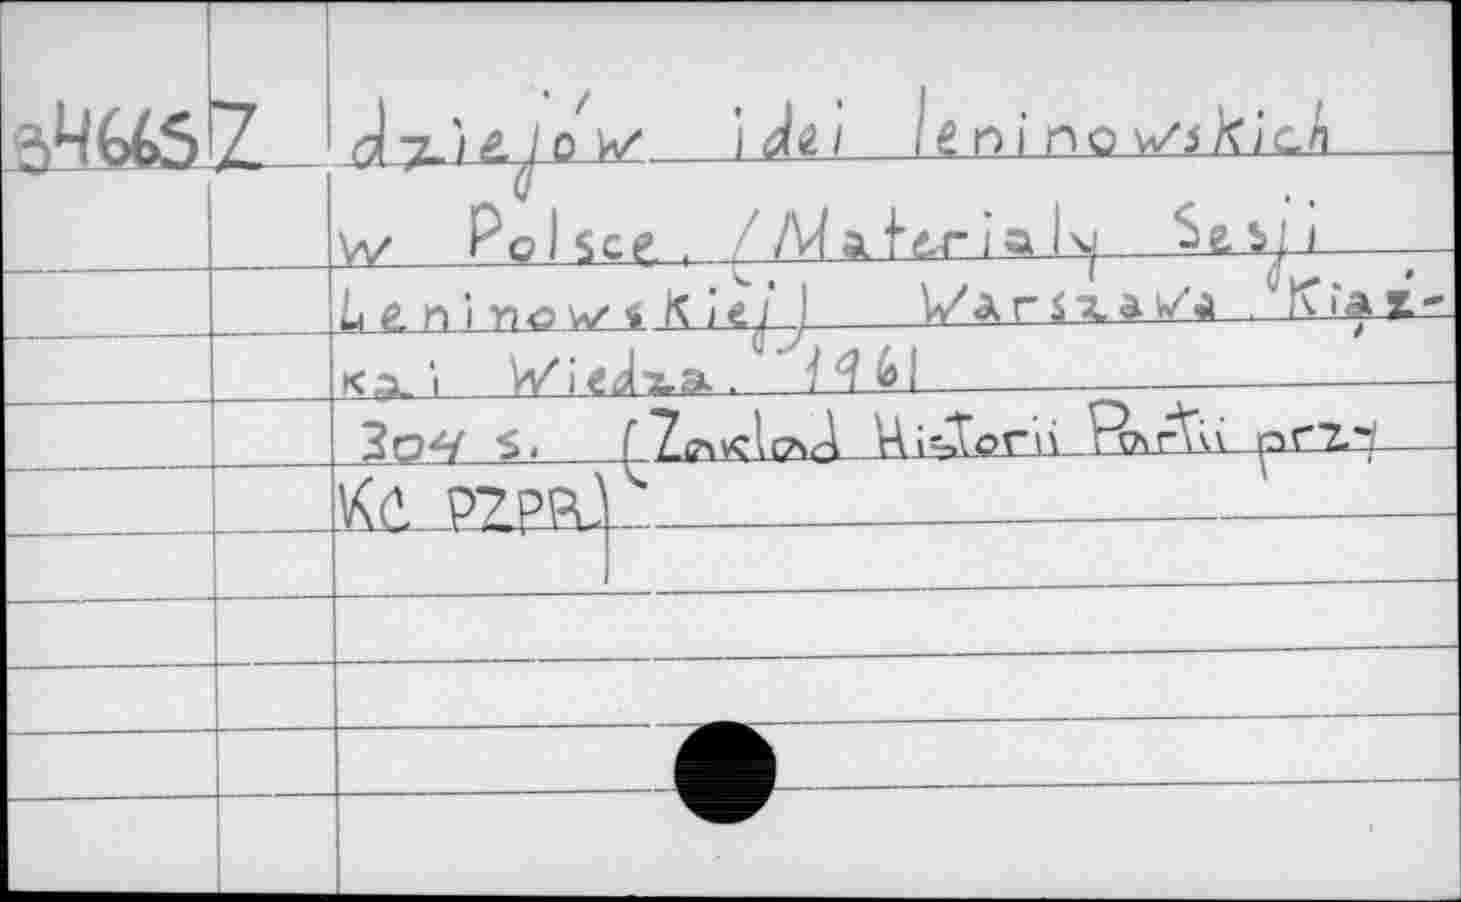 34665 Z dziejów idei leninowskich
w Polsce. (Materialy Sesji
Leninowskiej) Warszawa. Kiąż-
ka i Wiedza. 1961
304 s. (Zakład Historii Partii przy
KC PZPR)